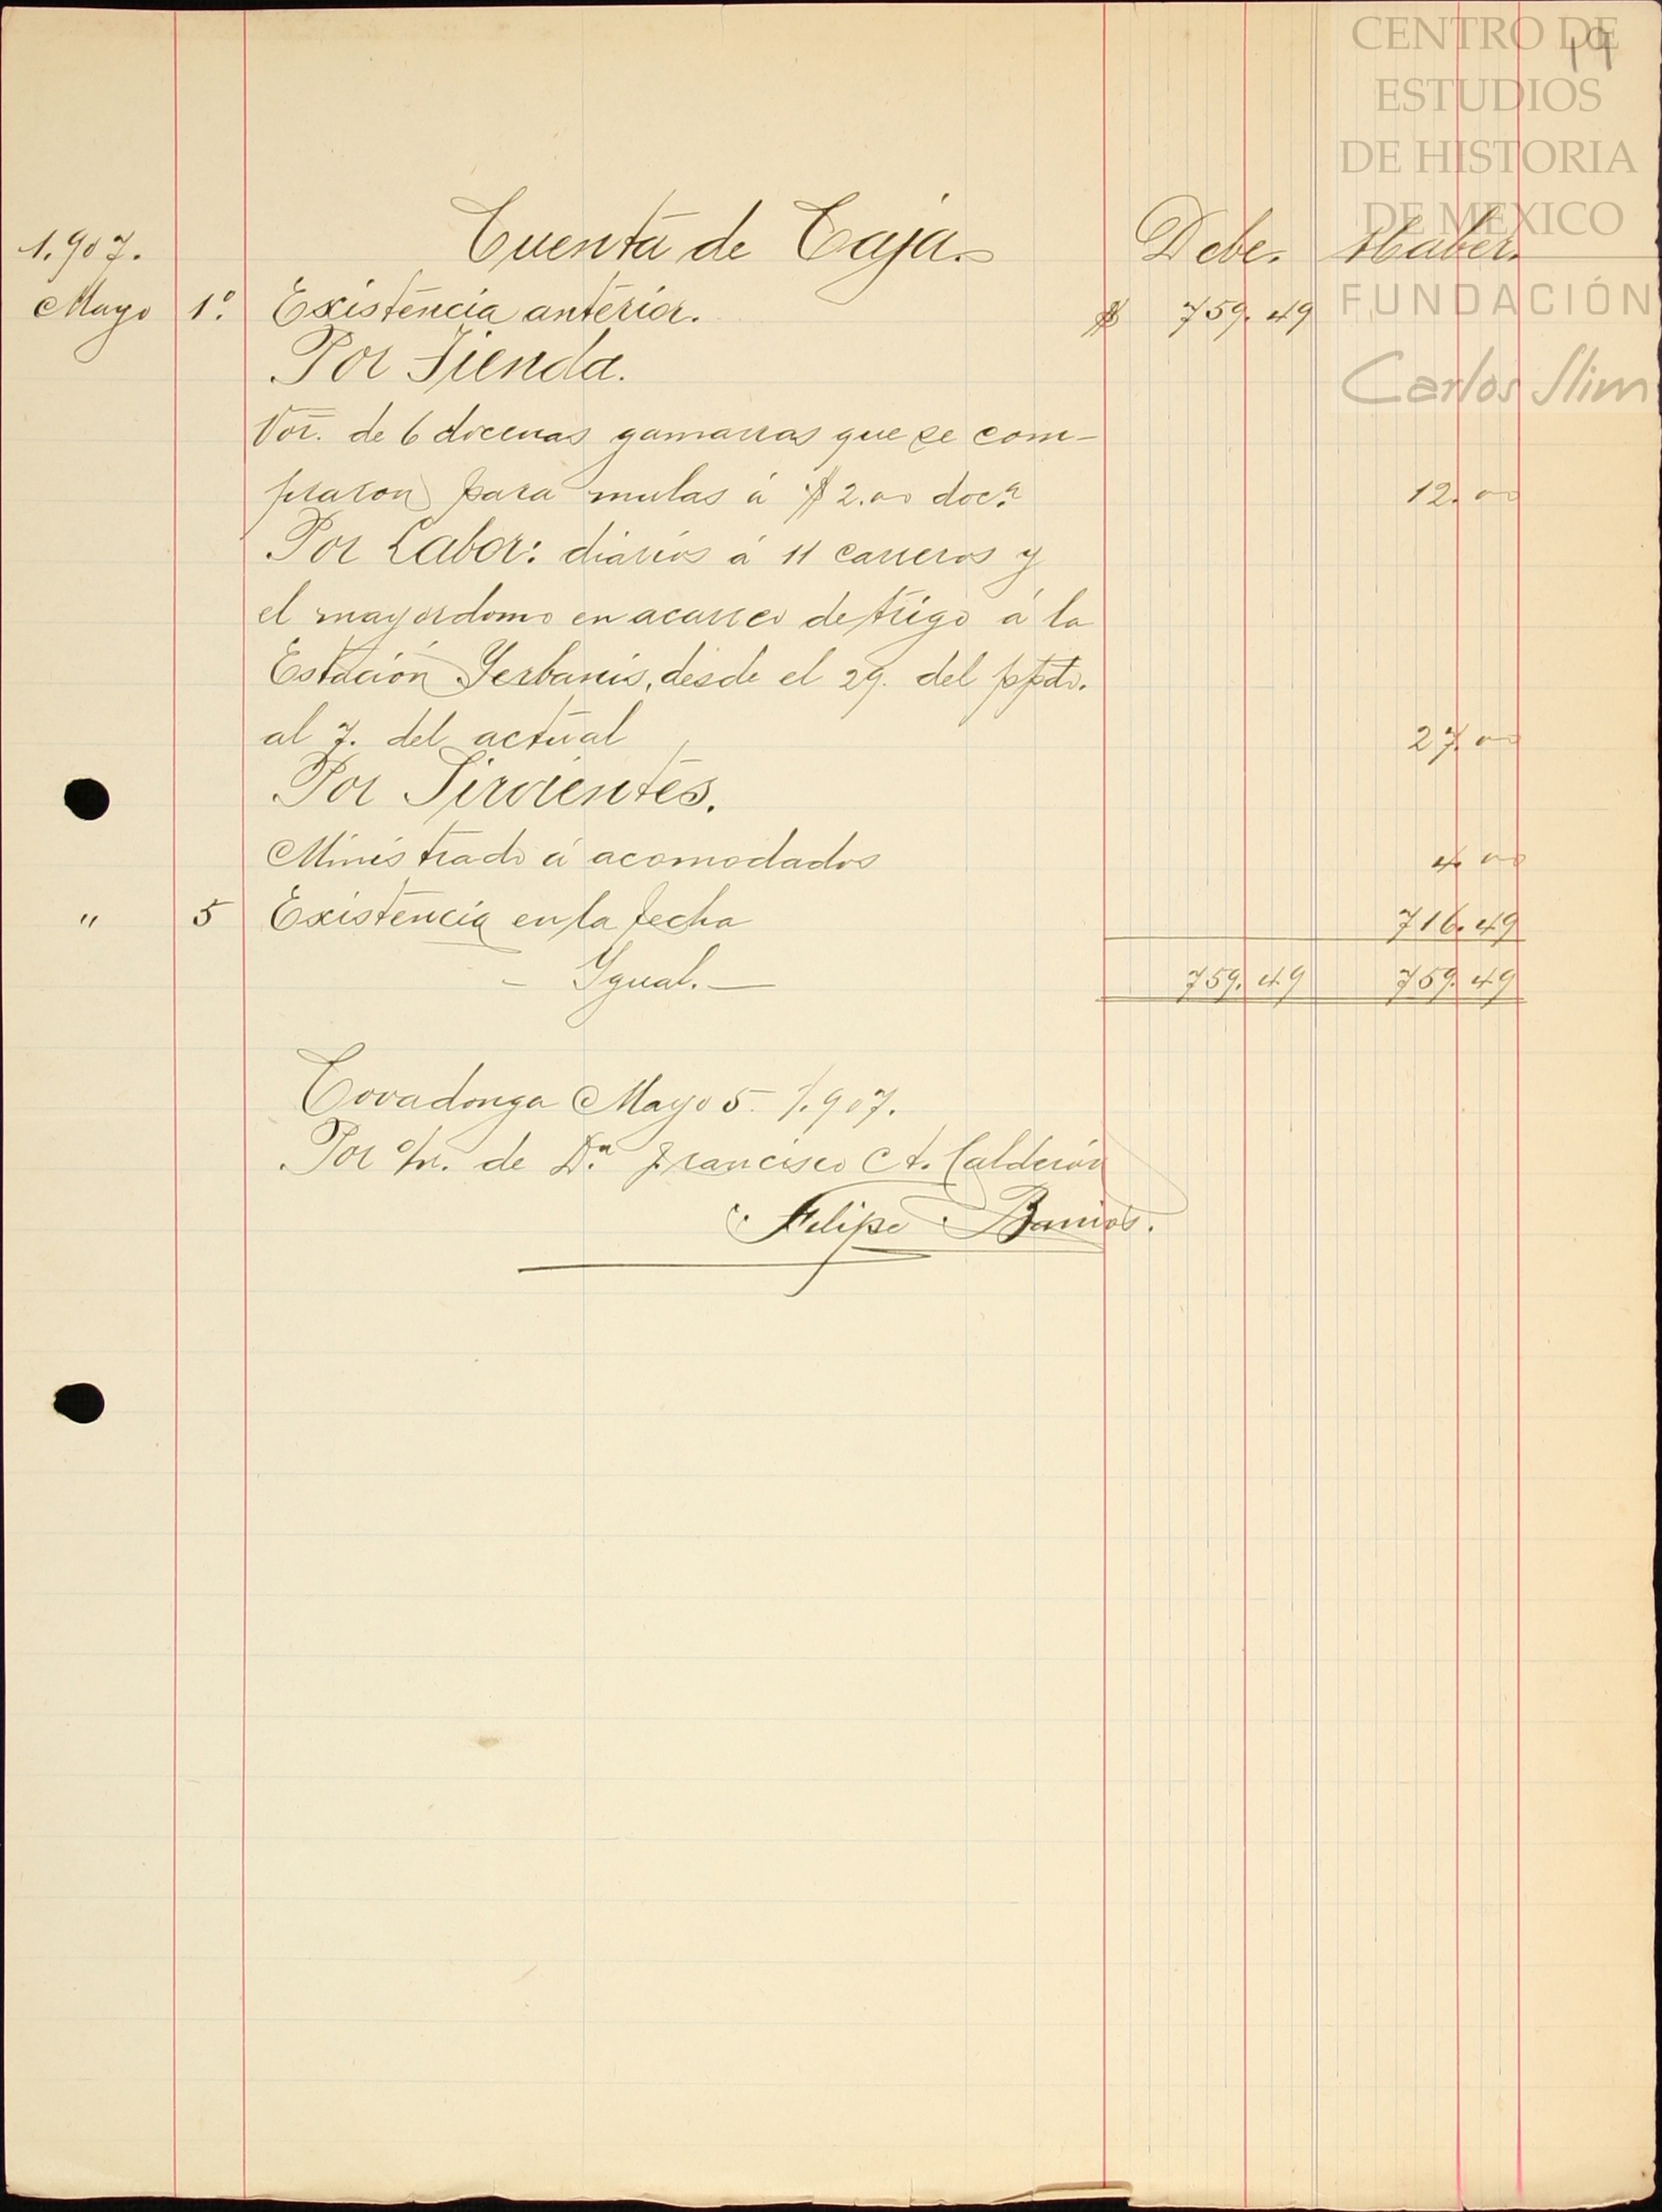 CENTRO DE
ESTUDIOS
DE HISTORIA
DE MEXICO
FUNDACIÓN
Carlos Slim
19
1.907. Cuenta de Caja. Debe. Haber.
Mayo 1º. Existencia anterior. $ 759.49
Por Tienda.
Vor. de 6 docenas gamarras que se com-
praron para mulas á $2.00 docª 12.00
Por Labor: diarios á 11 carreros y
el mayordomo en acarreo de trigo á la
Estación Yerbanis, desde el 29. del ppdo.
al 7. del actual 27.00
Por Sirvientes.
Ministrado á acomodados 4.00
" 5 Existencia en la fecha 716.49
- Ygual. — 759.49 759.49
Covadonga Mayo 5. 1.907.
Por de Dn. Francisco A. Calderón
Felipe Barrios.